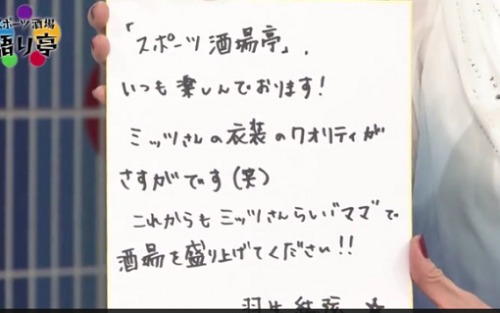 スポーツ酒場
語り亭
「スポーツ酒場亭」、
いつも楽しんでおります!
ミッツさんの衣装のクオリティが
さすがです(笑)
これからもミッツさんらしい"ママ"で
酒場を盛り上げてください!!
羽生結弦